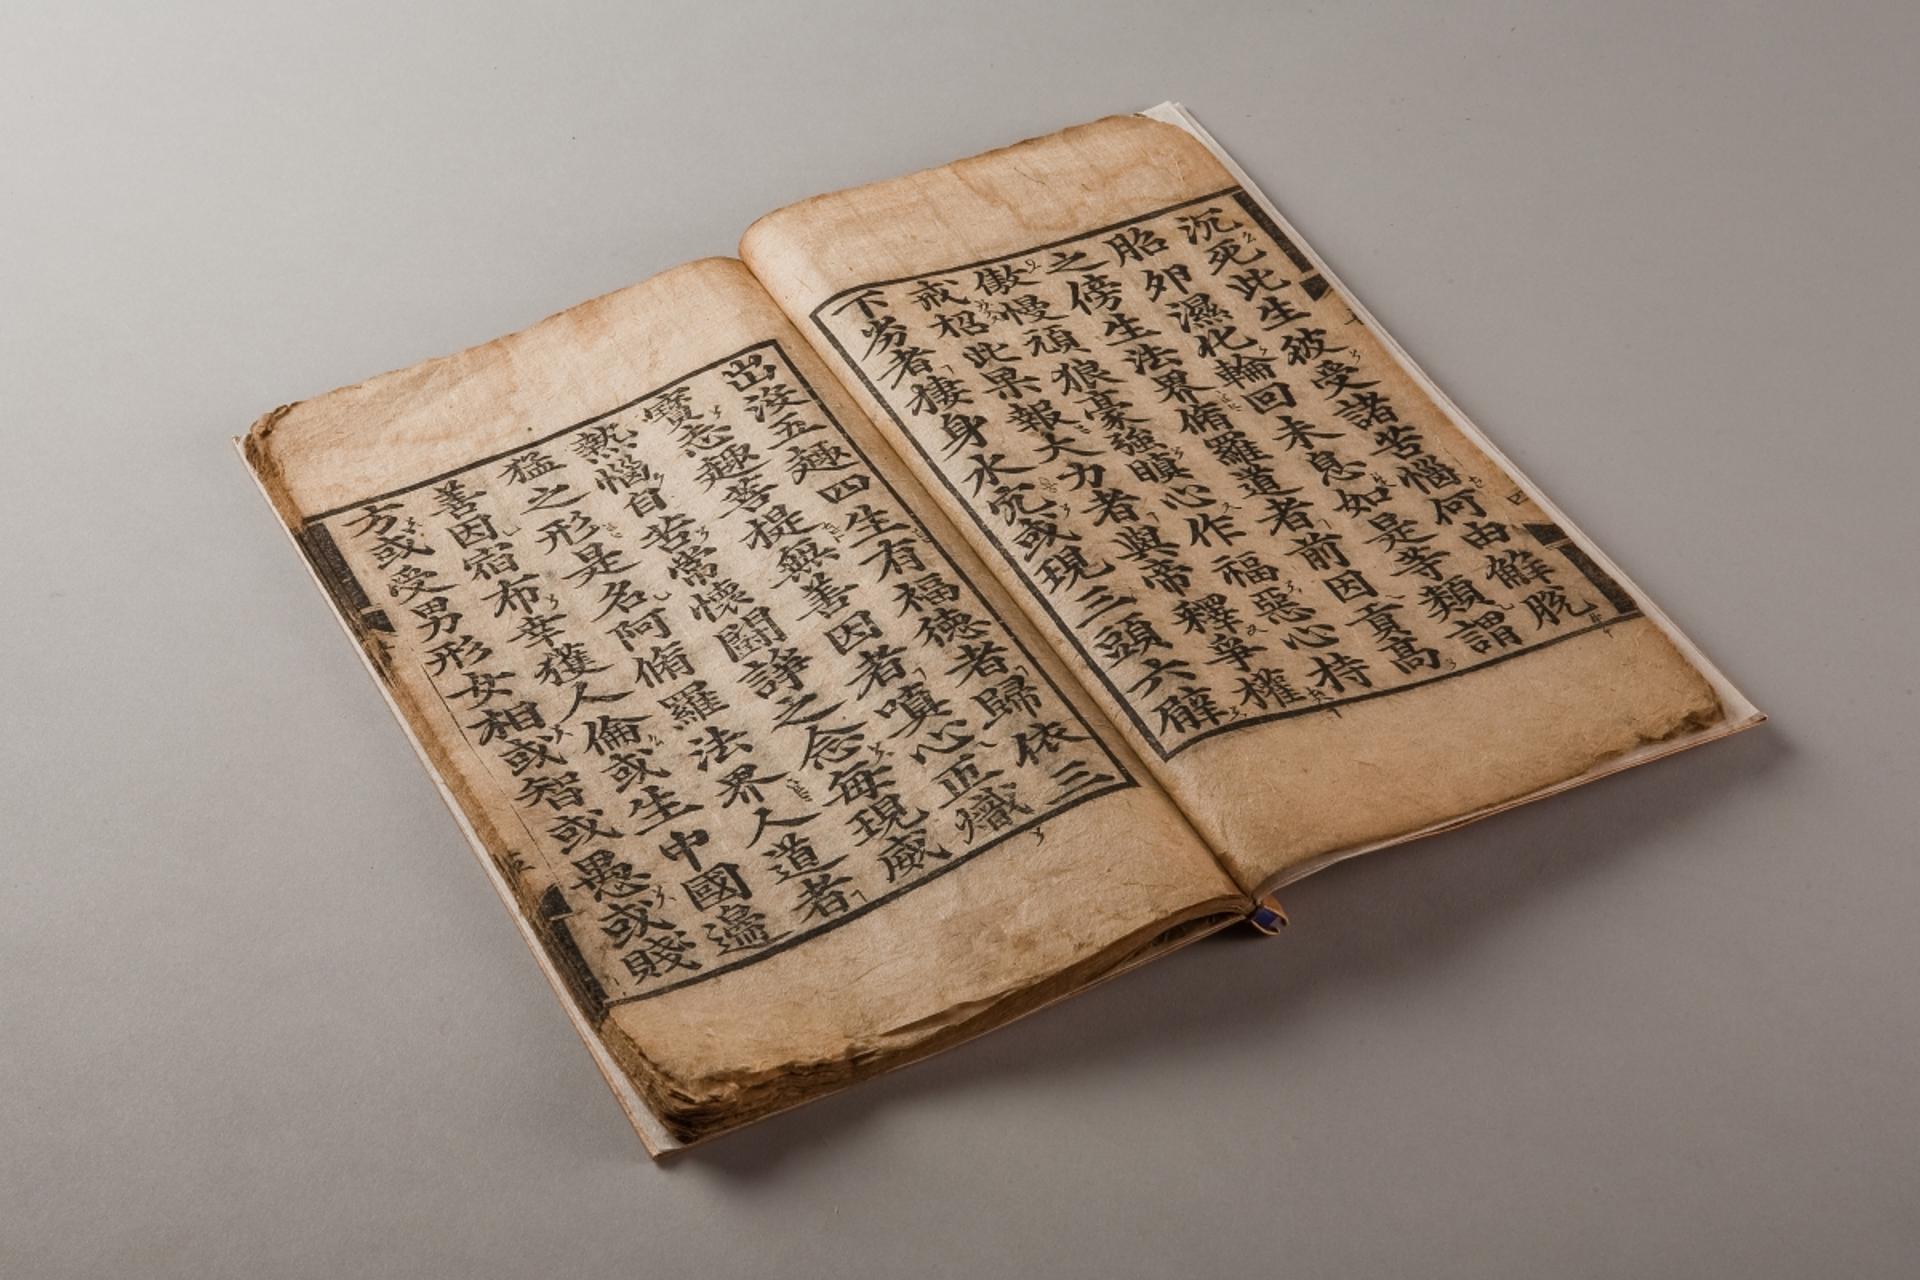 沉死此生彼受諸苦惱何由解脫
胎卵濕化輪回未息如是等類謂
之傍生法界脩羅道者前因貢高
傲慢頑狼豪強瞋心作福惡心持
戒招此果報大力者與帝釋爭權
下劣者棲身水穴或現三頭六臂
出沒五趣四生有福德者歸依三
寶志趣菩提無善因者嗔心正熾
熱惱自苦常懷鬪諍之念每現威
猛之形是名阿脩羅法界人道者
善因宿布幸獲人倫或生中國邊
方或受男形女相或智或愚或賤